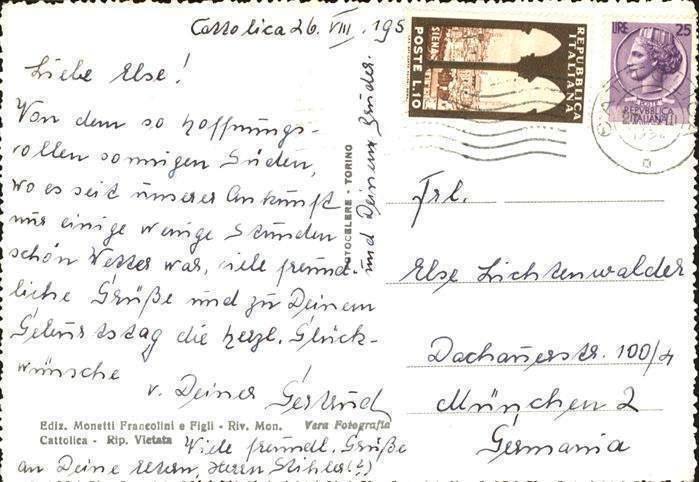 Cattolica 26. VIII. 195
Liebe Else!
Von dem so hoffnungs-
vollen sonnigen Süden,
wo es seit unserer Ankunft
nur einige wenige Stunden
schön Wetter war, viele freund-
liche Grüße und zu Deinem
Geburtstag die herzl. Glück-
wünsche !
v. Deiner Gertrud
und Deinem Bruder.
Viele freundl. Grüße
an Deine Eltern, Herrn Stihler(?)
Ediz. Monetti Francolini e Figli - Riv. Mon. Vera Fotografia
Cattolica - Rip. Vietata
FOTOCELERE - TORINO
REPUBBLICA
ITALIANA
SIENA
POSTE L.10
LIRE 25
REPVBBLICA
ITALIANA
Frl.
Else Lichtenwalder
Dachauerstr. 100/4
München 2
Germania